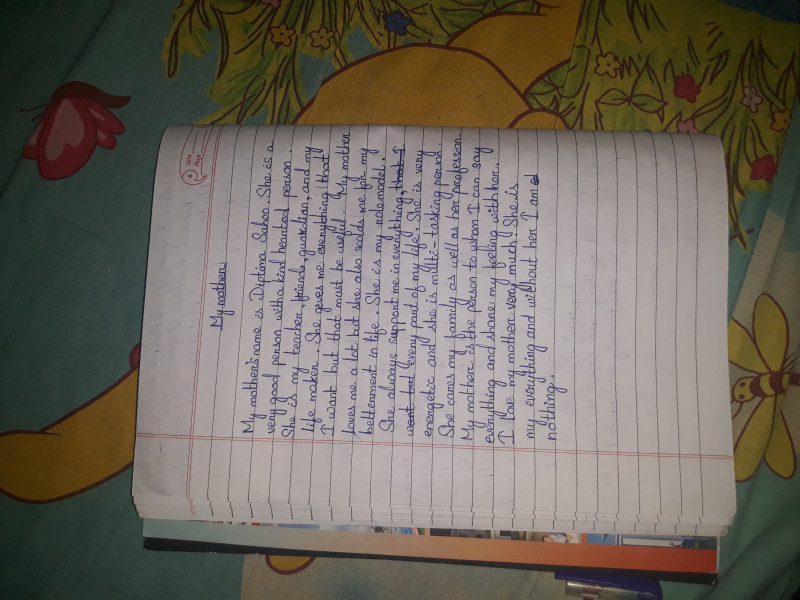 Date
Page
My mother
My mother's name is Diptima Sahoo. She is a
very good person with a kind hearted person.
She is my teacher, friend, guardian, and my
life maker. She gives me everything that
I want but that must be useful. My mother
loves me a lot but she also scolds me for my
betterment in life. She is my role model.
She always support me in everything, that I
want but every part of my life. She is very
energetic and she is multi-tasking person.
She cares my family as well as her profession.
My mother is the person to whom I can say
everything and share my feeling with her..
I love my mother very much! She is
my everything and without her I am
nothing..